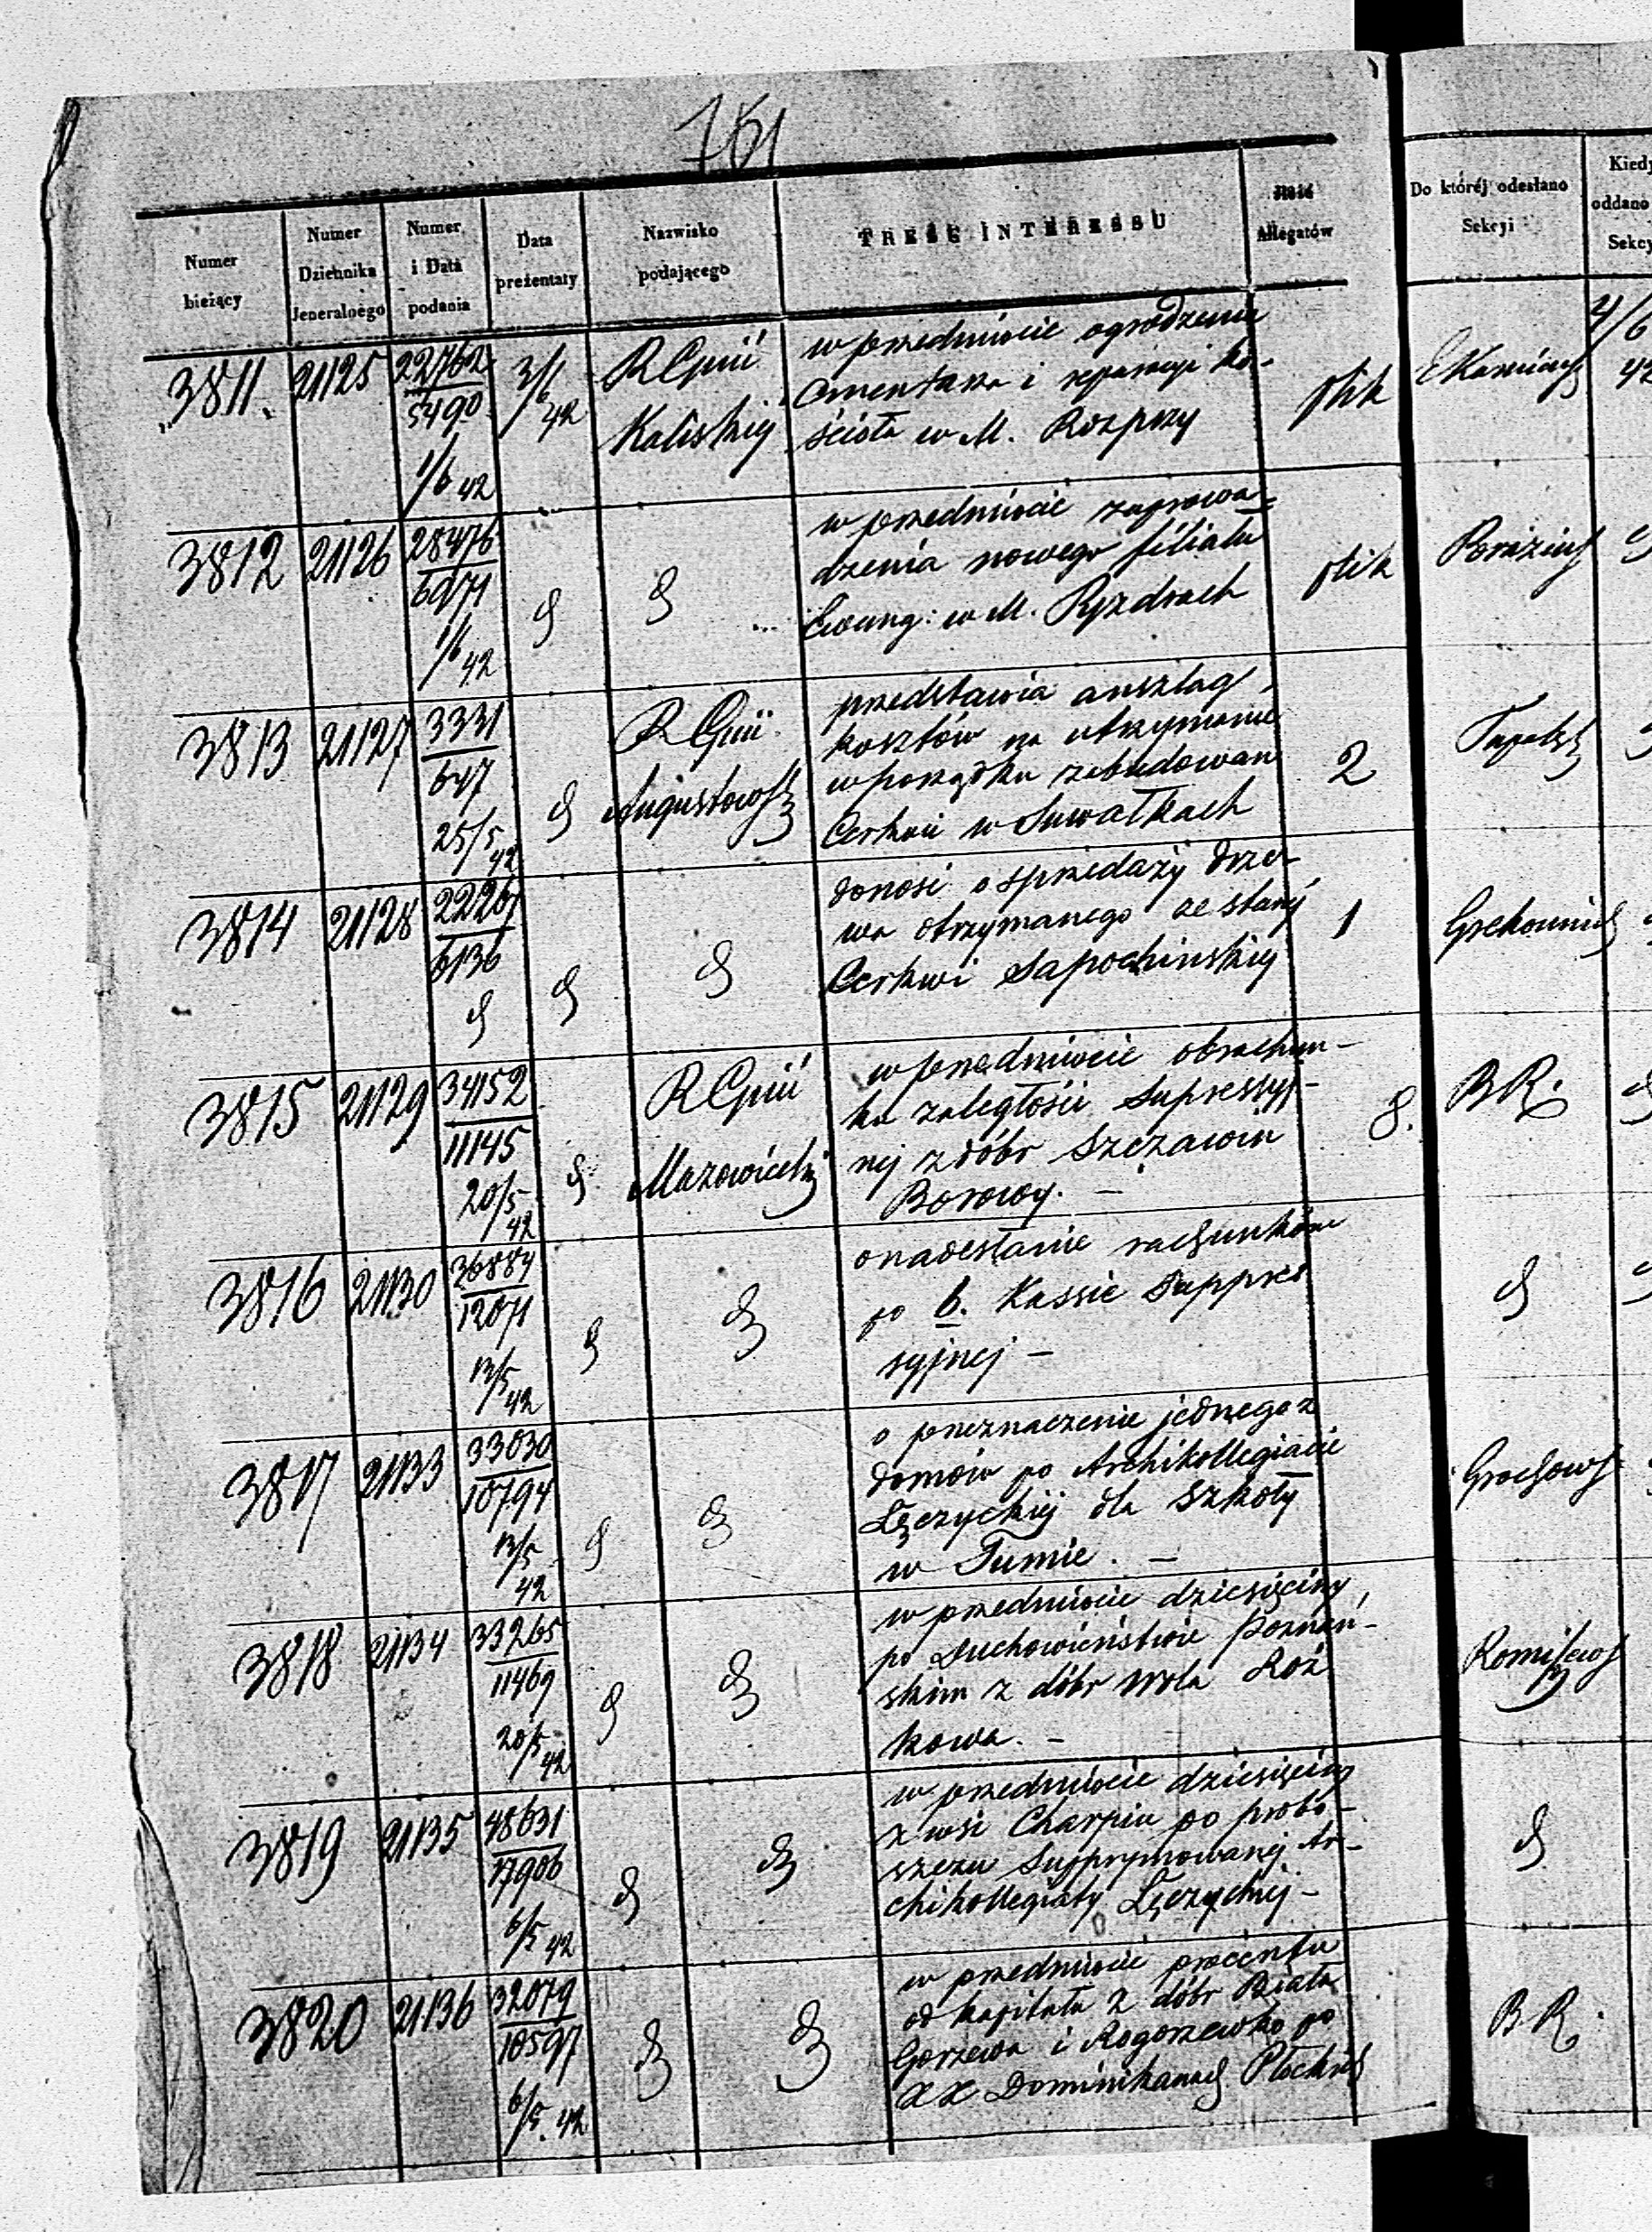 761
Numer bieżący
Numer Dziennika Jeneralnego
Numer i Data podania
Data prezentaty
Nazwisko podającego
TREŚĆ INTERESSU
Ilość Allegatów
Do któréj odesłano Sekcyi
Kiedy oddano Sekcy
3811. 21125 22762 3/6 42 R Gun w przedmiocie ogrodzenia
5490 Kaliskiej Cmentarza i reparacyi ko-
1/6 42 ścioła w M. Rozprzy plik
4/6 42
3812 21126 28476 w przedmiocie zaprowa-
6071 dzenia nowego filiału plik
1/6 42 Ewang: w M. Pyzdrach
3813 21127 3331 R Gun przedstawia anszlag
647 Augustows kosztów na utrzymanie 2
25/5 42 w porządku zabudowań
Cerkwi w Suwałkach
3814 21128 donosi o sprzedaży drze-
6136 wa otrzymanego ze starej 1
Cerkwi Sapockinskiej
3815 21129 34152 R Gun w przedmiocie obrachun-
11145 Mazowieckiej ka zaległości Supressyj- 8. B R.
20/5 42 nej z dóbr Szczawin
Borowy. —
3816 21130 36884 o nadesłanie rachunków
12071 po b. Kassie Suppres
13/5 42 syjnej —
3817 21133 33030 o przeznaczenie jednego z
10794 domów po Archikollegiacie Grochows
13/5 42 Łęczyckiej dla Szkoły
w Tumie. —
3818 21134 33265 w przedmiocie dziesięciny
11469 po Duchowieństwie Poznań-
20/5 42 skim z dóbr Wola Roż
kowa. —
3819 21135 48631 w przedmiocie dziesięciny
17906 z wsi Charpin po probo-
6/5 42 szczu Supprymowanej Ar-
chikollegiaty Łęczyckiej —
3820 21136 32079 w przedmiocie procentu
10597 od kapitału z dóbr Biała B R.
6/5. 42 Gorzewa i Rogorzewko po
XX Dominikanach Płockich